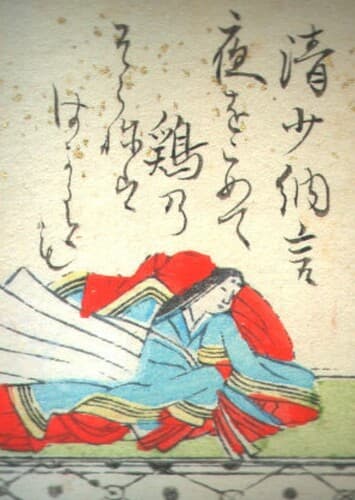 清少納言
夜をこめて
鶏乃
そら袮は
はかるとも